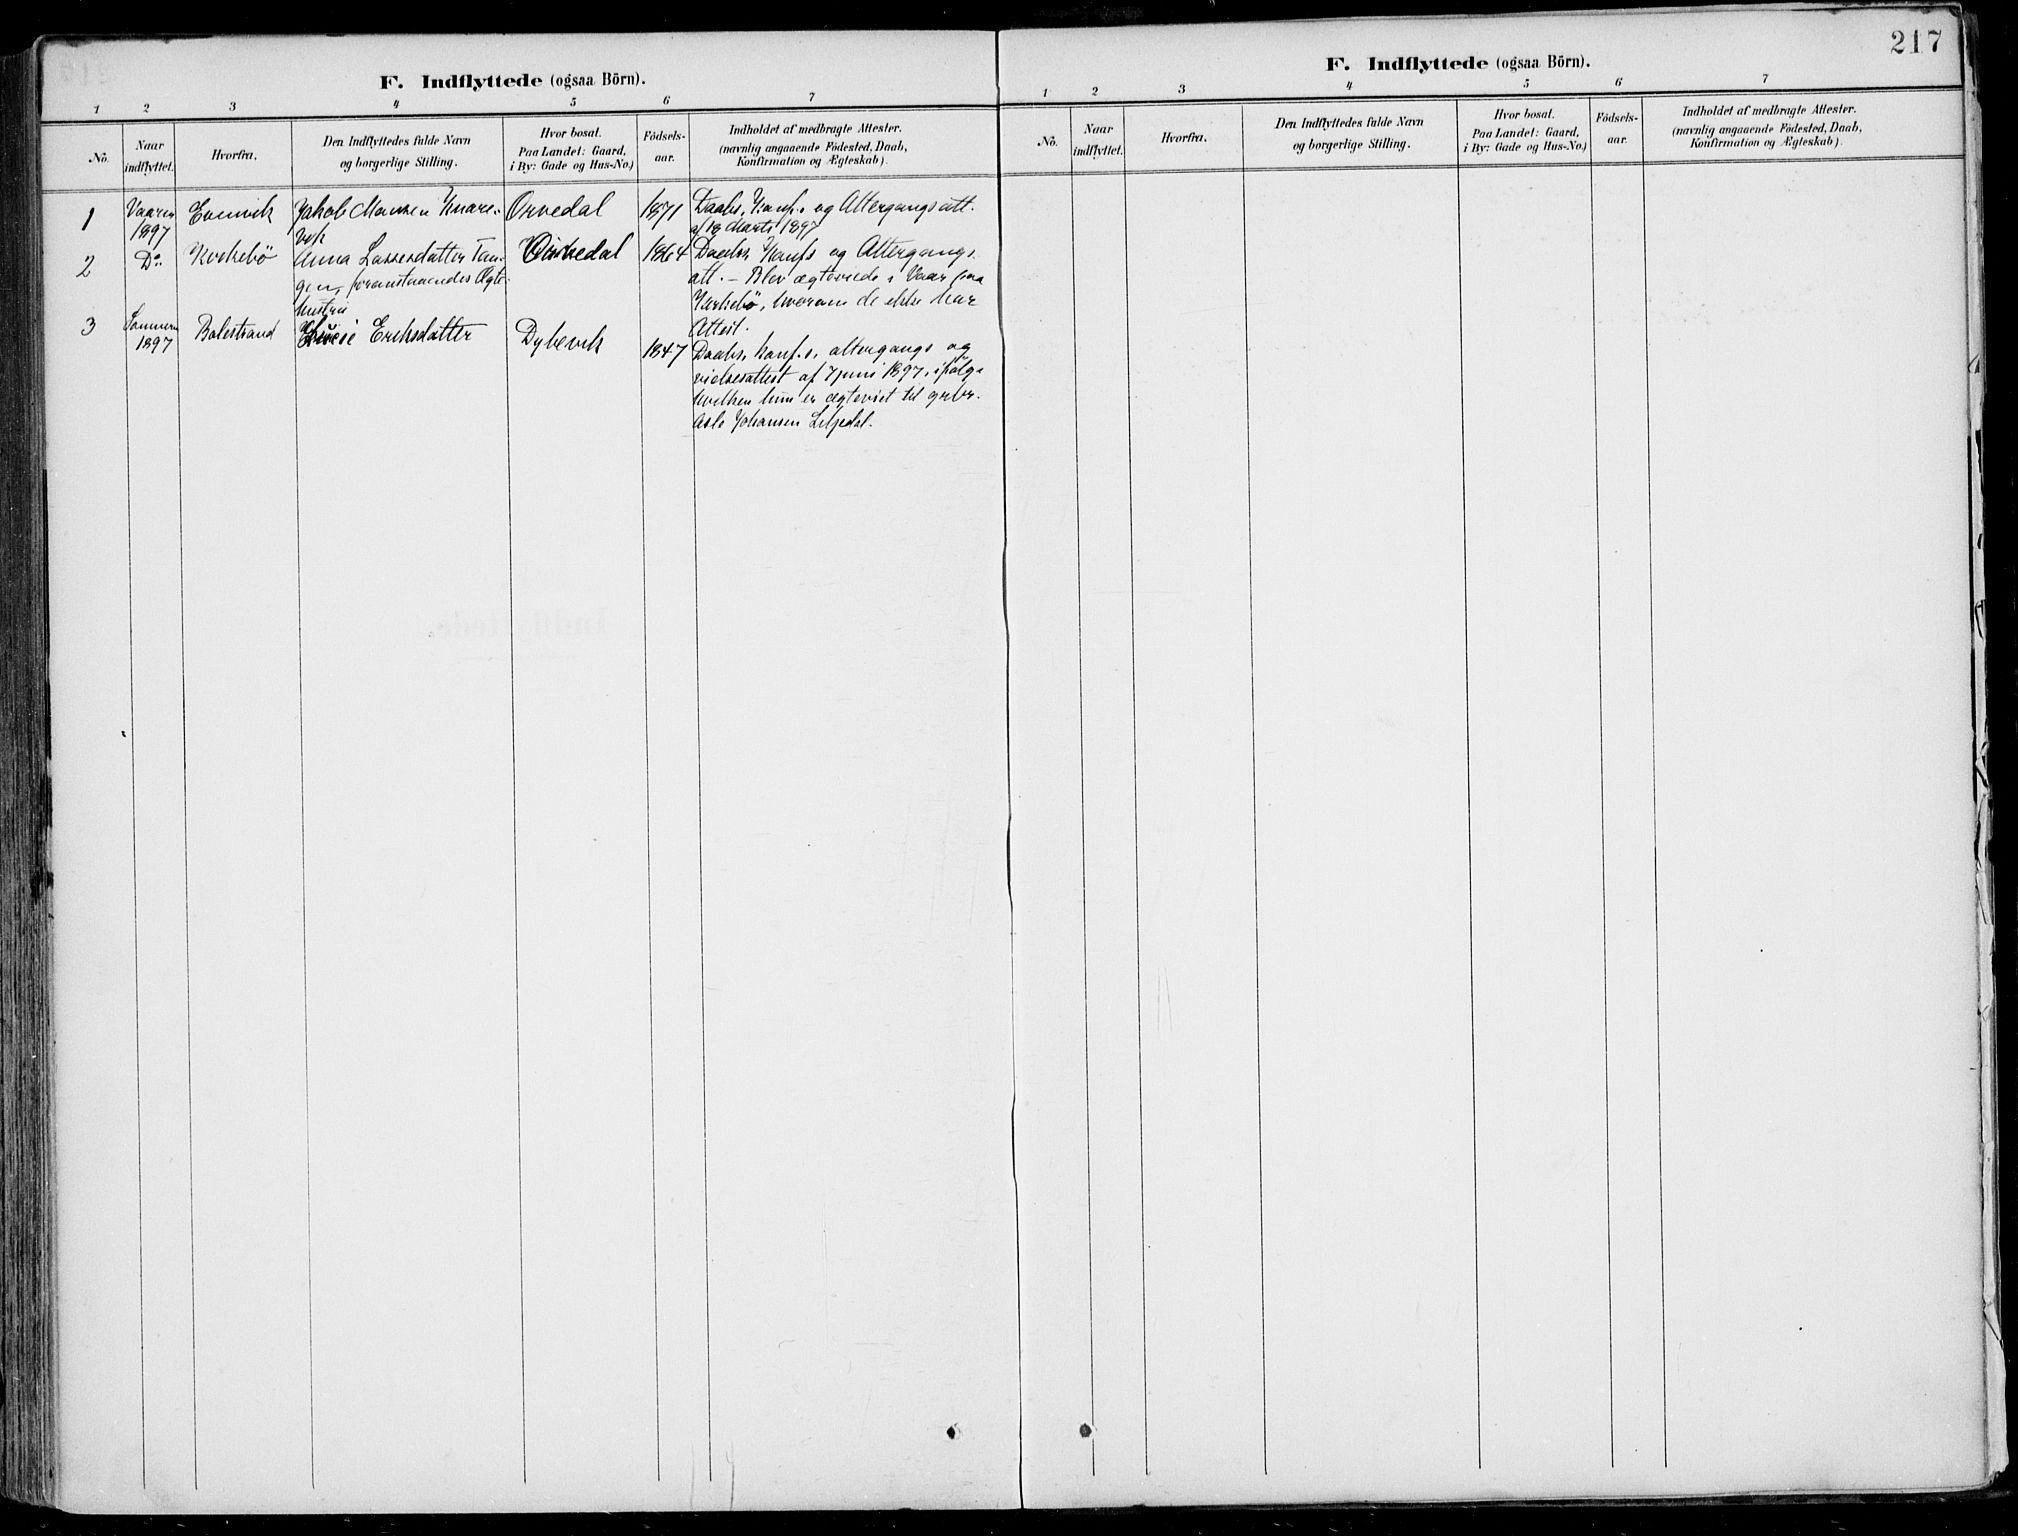 F. Indflyttede (ogsaa Börn).
1 2 3 4 5 6 7
No.
Naar
indflyttet.
Hvorfra.
Den Indflyttedes fulde Navn
og borgerlige Stilling.
Hvor bosat.
Paa Landet: Gaard,
i By: Gade og Hus-No.)
Födsels-
aar.
Indholdet af medbragte Attester.
(navnlig angaaende Födested, Daab,
Konfirmation og Ægteskab).
1
Vaaren
1897
Evenvik
Jakob Monsen Knare-
vik
Orvedal
1871
Daabs, Konf.s og Altergangsatt.
af 18 Marts 1897
2
Do
Kirkebø
Anna Lassesdatter Tan-
gen, foranstaaendes Ægte-
hustru
Orvedal
1864
Daabs, Konfs og Altergangs
att. – Blev ægteviede i Vaar paa
Kirkebø, hvorom de ikke har
Attest.
3
Sommeren
1897
Balestrand
Eriksdatter
Dybevik
1847
Daabs, Konf.s, altergangs og
vielsesattest af 7 juni 1897, ifølge
hvilken hun er ægteviet til gbr.
Asle Johansen
217
F. Indflyttede (ogsaa Börn).
1 2 3 4 5 6 7
No.
Naar
indflyttet.
Hvorfra.
Den Indflyttedes fulde Navn
og borgerlige Stilling.
Hvor bosat.
Paa Landet: Gaard,
i By: Gade og Hus-No.)
Födsels-
aar.
Indholdet af medbragte Attester.
(navnlig angaaende Födested, Daab,
Konfirmation og Ægteskab).